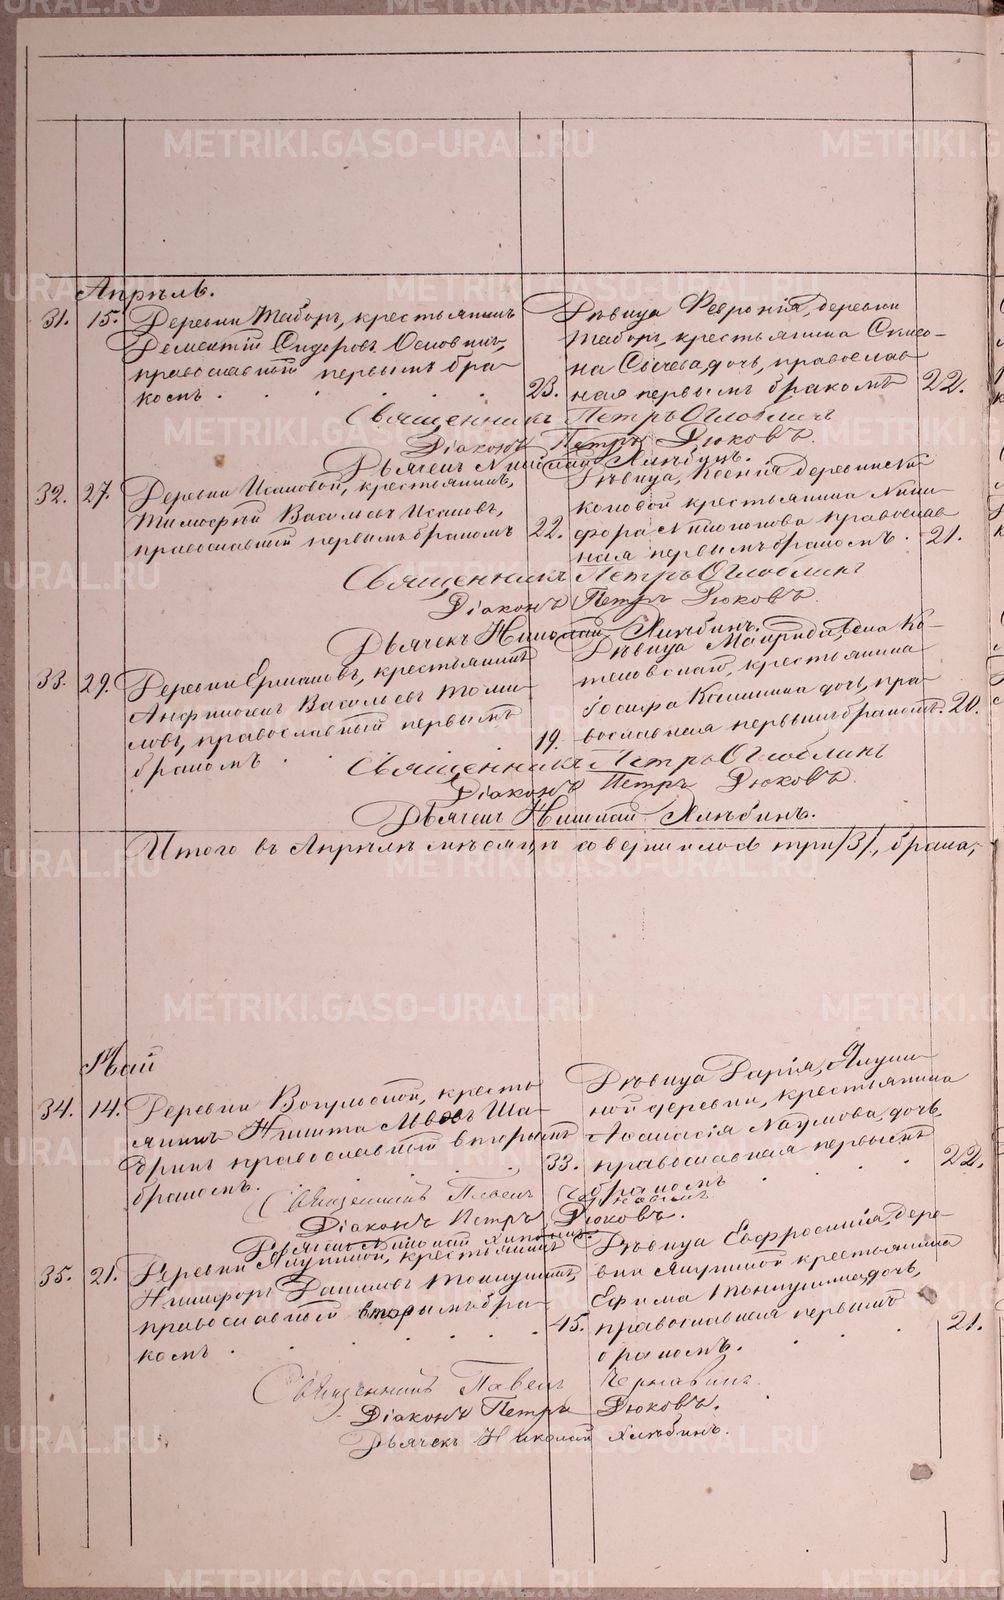 Апрѣль.
31. 15. Деревни Таборъ, крестьянинъ
Дементій Сидоровъ Осповинъ,
православный первымъ бра-
комъ 23.
Дѣвица Феврониiя, деревни
Таборъ, крестьянина Симео-
на Сычева дочь, православ-
ная первымъ бракомъ 22.
Священникъ Петръ Оглоблинъ
Діаконъ Петръ Дюковъ.
Дьячекъ Николай Хлѣбинъ.
32. 27. Деревни Исаковой, крестьянинъ,
Тимофей Васильевъ Исаковъ,
православный первымъ бракомъ 22.
Дѣвица, Ксенія деревни
коновой крестьянина Ники-
фора православ-
ная первымъ бракомъ. 21.
Священникъ Петръ Оглоблинъ
Діаконъ Петръ Дюковъ.
Дьячекъ Николай Хлѣбинъ.
33. 29. Деревни Ермаковъ, крестьянинъ
Васильевъ Томи-
ловъ, православный первымъ
бракомъ 19.
Дѣвица Маврида, села Ко-
шевскаго, крестьянина
Іосифа Камшина дочь, пра-
вославная первымъ бракомъ. 20.
Священникъ Петръ Оглоблинъ
Діаконъ Петръ Дюковъ.
Дьячекъ Николай Хлѣбинъ.
Итого въ Апрѣлѣ мѣсяцѣ совершилось три /3/, брака,
Май
34. 14. Деревни Вогульской, кресть-
янинъ Никита Ша-
дринъ православный вторымъ
бракомъ. 33.
Дѣвица Дарія, Ялуни-
ной деревни, крестьянина
Аѳанасія Наумова дочь,
православная первымъ
бракомъ 22.
Священникъ Павелъ Чернавинъ
Діаконъ Петръ Дюковъ.
Дьячекъ Николай Хлѣбинъ.
35. 21. Деревни Ялуниной, крестьянинъ
Никифоръ Даниловъ
православный вторымъ бра-
комъ 45.
Дѣвица Евфросинія, дере-
вни Ялуниной крестьянина
Ефима дочь,
православная первымъ
бракомъ. 21.
Священникъ Павелъ Чернавинъ.
Діаконъ Петръ Дюковъ.
Дьячекъ Николай Хлѣбинъ.
METRIKI.GASO-URAL.RU